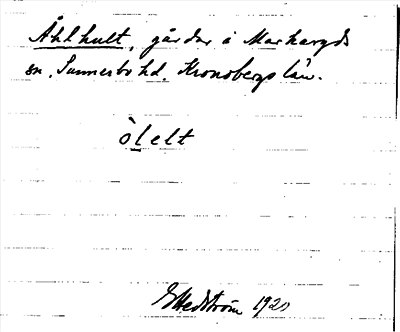 Åhlhult, gårdar i Markaryds
sn, Sunnerbo hd, Kronobergs län.
òlelt
EHedström 1920